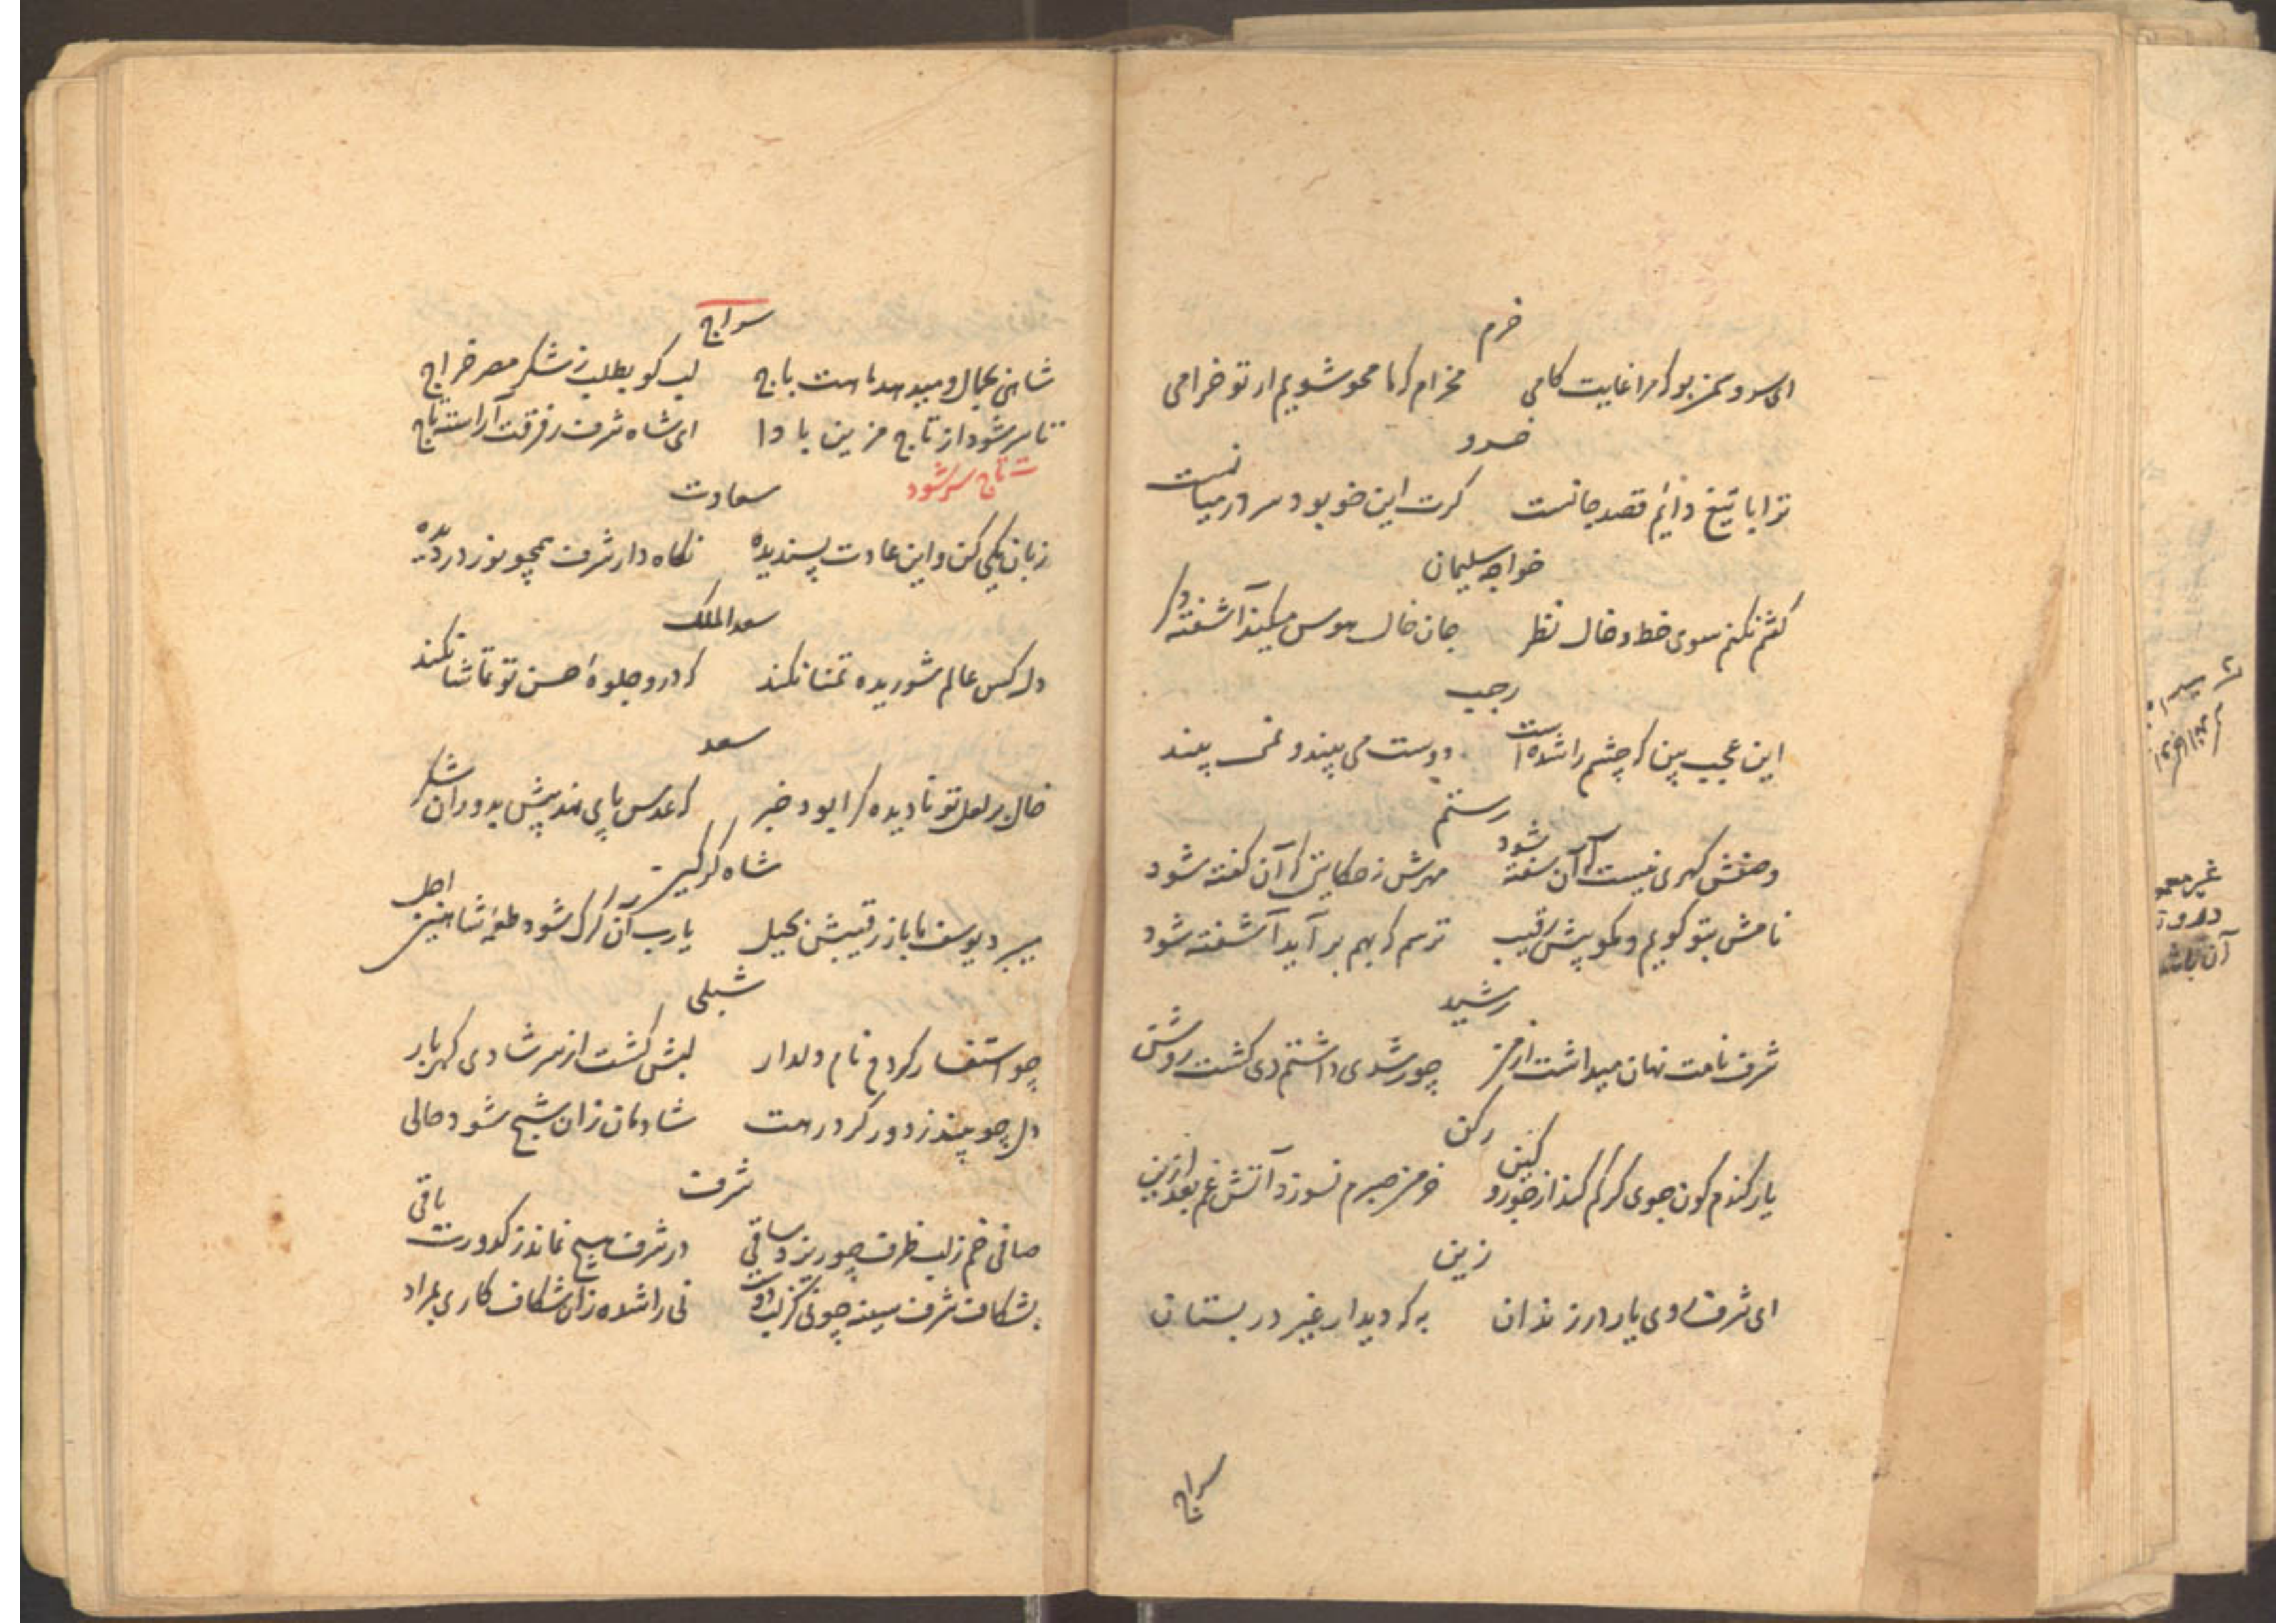 خرم
ای سرو سمنبر بود مرا غایت کامی مخرام که ما محو شویم ار تو خرامی
خسرو
ترا با تیغ دائم قصد جانست کرت این خو بود سر در میانست
خواجه سلیمان
کفتم نکنم سوی خط و خال نظر جان خال هوس میکند آشفته دکر
رجب
این عجب بین که چشم را شده است دوست می بیند و نمی بیند
رستم
وصفش کهری نیست که آن سفته شود مهرش نه حکایتی که آن کفته شود
نامش بتو کویم و مکو پیش رقیب ترسم که بهم برآید آشفته شود
رشید
شرف نامت نهان میداشت از من چو رشدی داشتم دی کشت روشن
رکن
یار کندم کون جوی کر کم کند از جور و کین خرمن صبرم نسوزد آتش غم بعد ازین
زین
ای شرف روی یار در زندان به که دیدار غیر در بستان
سراج
سراج
شاهی بجمال و میدهد ماهت باج لب کو بطلب ز شکر مصر خراج
تا سر شود از تاج مزین بادا ای شاه شرف ز فرقت آراسته تاج
ت تاج سر شود
سعادت
زبان نیکی کن و این عادت پسندیده نکاه دار شرف همچو نور در دیده
سعدالملک
دل کس عالم شوریده تمنا نکند که درو جلوهٔ حسن تو تماشا نکند
سعد
خال بر لعل تو نادیده کرا بود خبر که عدس پای نهد پیش بدوران شکر
شاه کرکیر
میبرد یوسف ما باز رقیبش بحیل یارب آن کرک شود طعمهٔ شاهین اجل
شبلی
چو استفسار کردم نام دلدار لبش کشت از سر شادی کهربار
دل چو بیند ز دور کرد رهت شادمان زان شبح شود حالی
شرف
صافی خم ز لب ظرف چو ریزد ساقی در شرف هیچ نماند ز کدورت باقی
بشکاف شرف سینه چو نی کز لب دوست نی را شده زان شکاف کاری بمراد